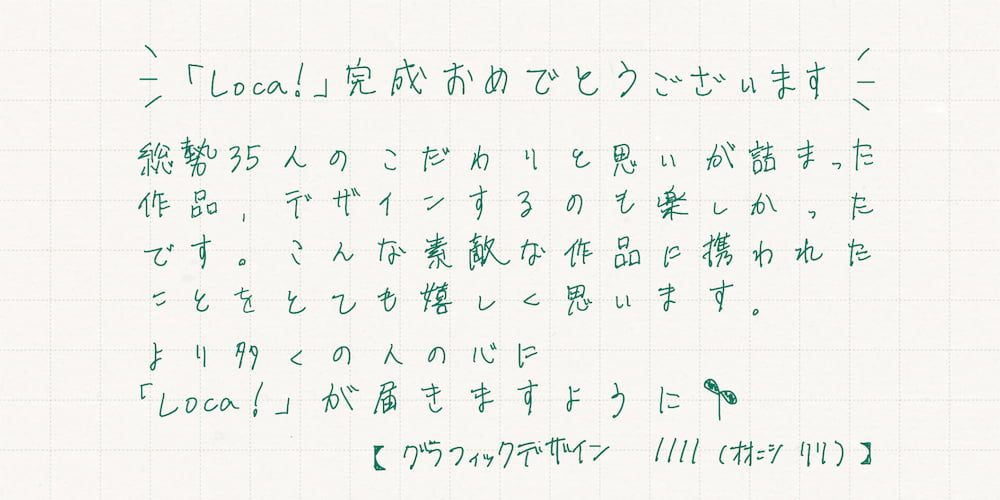 「Loca!」完成おめでとうございます
総勢35人のこだわりと思いが詰まった
作品,デザインするのも楽しかった
です。こんな素敵な作品に携われた
ことをとても嬉しく思います。
より多くの人の心に
「Loca!」が届きますように
【グラフィックデザイン 1111(オオニシ リリ)】